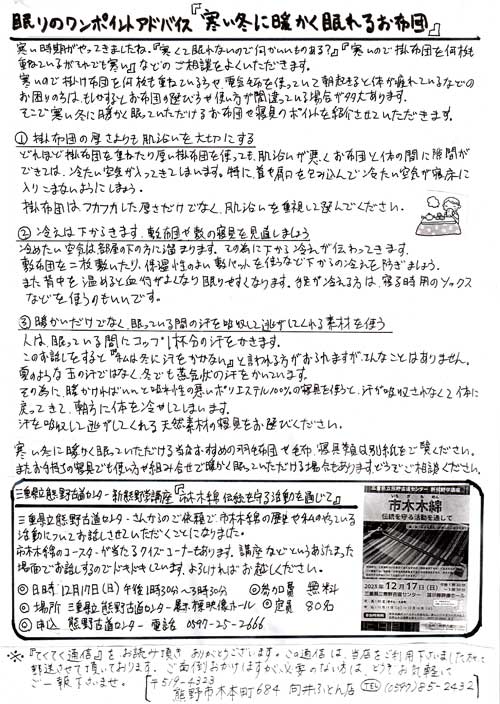 眠りのワンポイントアドバイス『寒い冬に暖かく眠れるお布団』
寒い時期がやってきましたね。『寒くて眠れないので何かいいものある？』『寒いので掛布団を何枚も
重ねているがそれでも寒い』などのご相談をよくいただきます。
寒いので掛け布団を何枚も重ねているや、電気毛布を使っていて朝起きると体が疲れているなどの
お困りの方は、もしかするとお布団の選び方や使い方が間違っている場合が多々あります。
そこで寒い冬に暖かく眠っていただけるお布団や寝具のポイントを紹介させていただきます。
① 掛布団の厚さよりも肌沿いを大切にする
どれほど掛布団を重ねたり厚い掛布団を使っても、肌沿いが悪くお布団と体の間に隙間が
できては、冷たい空気が入ってきてしまいます。特に、首や肩口を包み込んで冷たい空気が寝床に
入りこまないようにしましょう。
掛布団は、フカフカした厚さだけでなく、肌沿いを重視して選んでください。
② 冷えは下からきます、敷布団や敷の寝具を見直しましょう
冷めたい空気は部屋の下の方に溜まります。その為に下から冷えが伝わってきます。
敷布団を二枚敷いたり、保温性のよい敷パットを使うなど下からの冷えを防ぎましょう。
また背中を温めると血行がよくなり眠りやすくなります。手足が冷える方は、寝る時用のソックス
などを使うのもいいです。
③ 暖かいだけでなく、眠っている間の汗を吸収して逃がしてくれる素材を使う
人は、眠っている間にコップ1杯分の汗をかきます。
このお話しをすると『私は冬に汗をかかない』と言われる方がおられますが、そんなことはありません。
夏のような玉の汗ではなく、冬でも蒸気状の汗をかいています。
その為に、暖かければいいと吸湿性の悪いポリエステル100%の寝具を使うと、汗が吸収されなくて体に
戻ってきて、朝方に体を冷やしてしまいます。
汗を吸収して逃がしてくれる天然素材の寝具をお選びください。
寒い冬に暖かく眠っていただける当店おすすめの羽毛布団や毛布、寝具類は別紙をご覧ください。
またお手持ちの寝具でも使い方や組み合せで暖かく眠っていただける場合もあります。どうぞご相談ください。
三重県立熊野古道センター 新熊野学講座『市木木綿 伝統を守る活動を通じて』
三重県立熊野古道センターさんからのご依頼で、市木木綿の歴史や私のやっている
活動についてお話しさせていただくことになりました。
市木木綿のコースターが当たるクイズコーナーもあります。講座などというあらたまった
場面でお話しするのでドキドキしています。よろしければお越しください。
◎日時 12月17日(日) 午後1時30分〜3時30分 ◎参加費 無料
◎場所 三重県立熊野古道センター展示棟映像ホール ◎定員 80名
◎申込 熊野古道センター 電話 0597-25-2666
三重県立熊野古道センター 新熊野学講座
市木木綿
伝統を守る活動を通して
2023年12月17日(日)
※『てくてく通信』をお読み頂き ありがとうございます。この通信は、当店をご利用下さいました方に
郵送させて頂いております。ご面倒おかけしますが、必要のない方は、どうぞお気軽に
ご一報下さいませ。
〒519-4323
熊野市木本町684 向井ふとん店 TEL (0597)85-2432